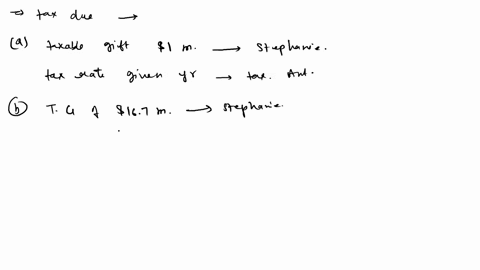 ⇒ tax due →
(a) taxable gift $1 m. → Stephanie.
tax rate given yr → tax. Amt.
(b) T. G of $16.7 m. → Stephanie.